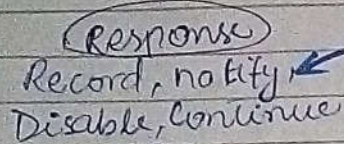 Response
Record, notify,
Disable, Continue